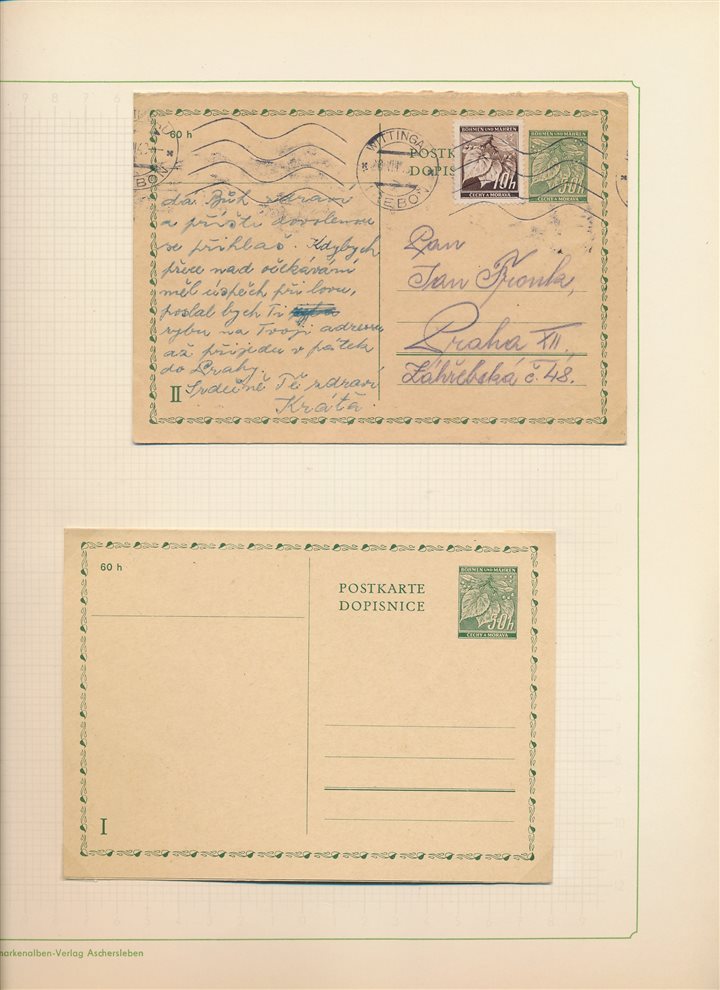 60 h
WITTINGAU
TŘEBOŇ
POSTK
DOPIS
BÖHMEN UND MÄHREN
10h
ČECHY A MORAVA
BÖHMEN UND MÄHREN
50h
ČECHY A MORAVA
dá Bůh zdraví
a příští dovolenou
se přihlaš. Kdybych
přece nad očekávání
měl úspěch při lovu,
poslal bych Ti
rybu na Tvoji adresu
až přijedu v pátek
do Prahy.
Srdečně Tě zdraví
II
Pan
Jan
Praha XII,
Záhřebská č. 48.
60 h
POSTKARTE
DOPISNICE
BÖHMEN UND MÄHREN
50h
ČECHY A MORAVA
I
markenalben-Verlag Aschersleben